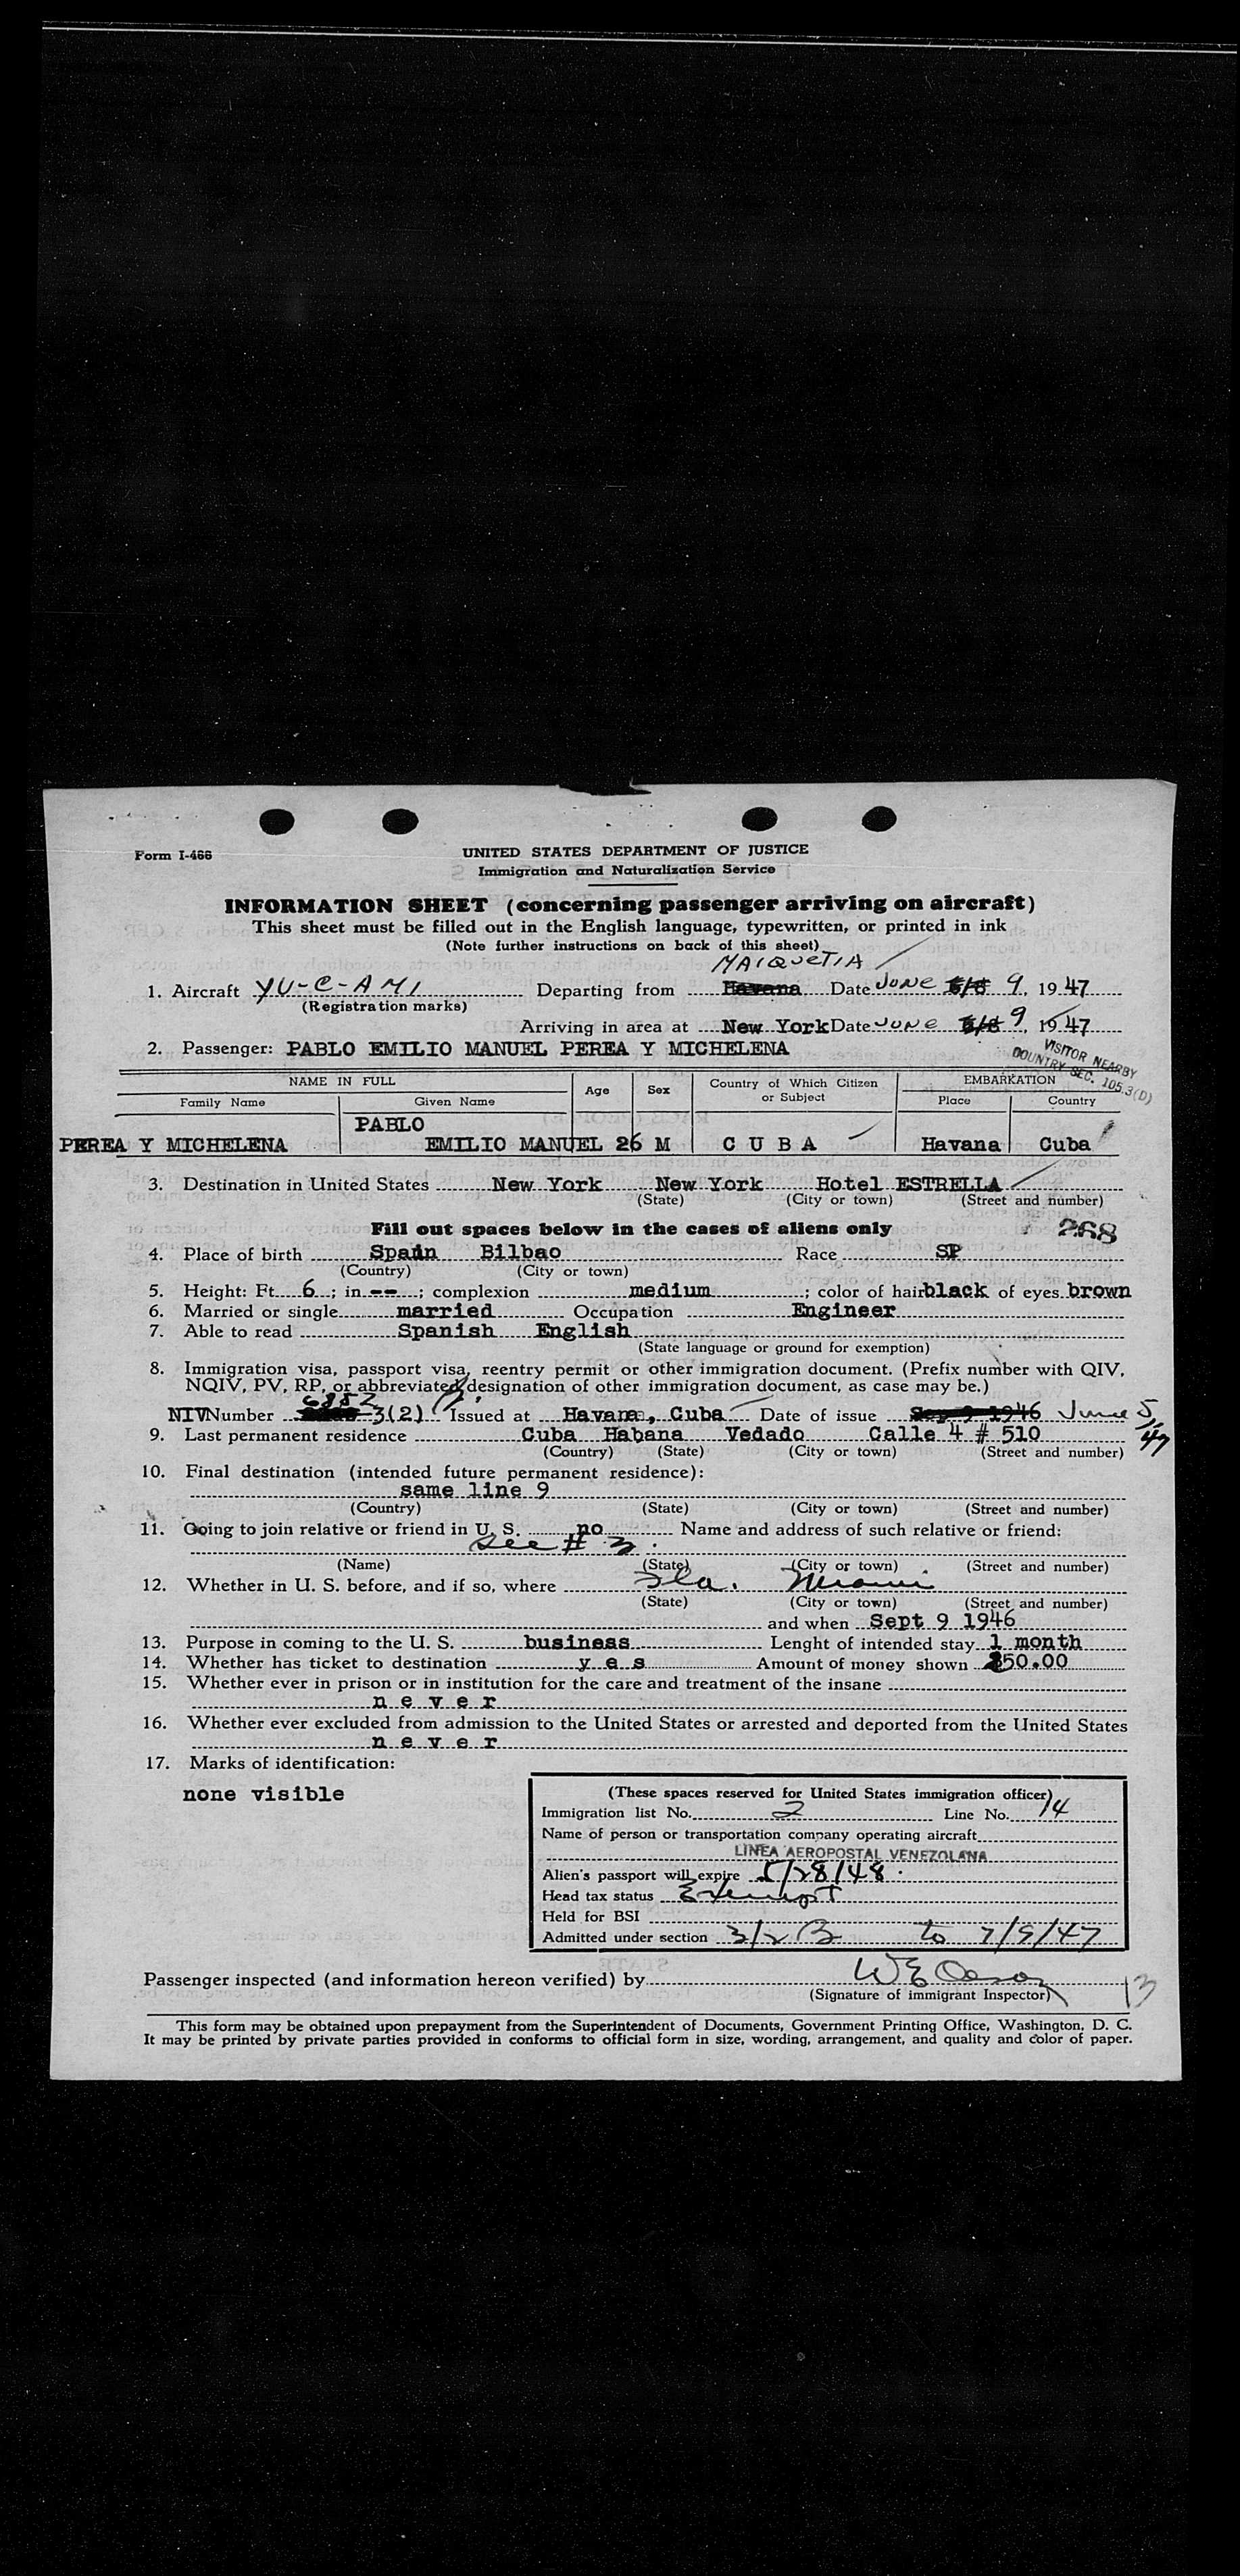 Form I-466
UNITED STATES DEPARTMENT OF JUSTICE
Immigration and Naturalization Service
INFORMATION SHEET (concerning passenger arriving on aircraft)
This sheet must be filled out in the English language, typewritten, or printed in ink
(Note further instructions on back of this sheet)
MAIQUETIA
1. Aircraft YU-C-AMI Departing from Havana Date JUNE 9, 19 47
(Registration marks)
Arriving in area at New York Date JUNE 9, 19 47
2. Passenger: PABLO EMILIO MANUEL PEREA Y MICHELENA
VISITOR NEARBY
COUNTRY SEC. 105.3(D)
NAME IN FULL Age Sex Country of Which Citizen or Subject EMBARKATION
Family Name Given Name Place Country
PABLO
PEREA Y MICHELENA EMILIO MANUEL 26 M C U B A Havana Cuba
3. Destination in United States New York New York Hotel ESTRELLA
(State) (City or town) (Street and number)
Fill out spaces below in the cases of aliens only 268
4. Place of birth Spain Bilbao Race SP
(Country) (City or town)
5. Height: Ft. 6 ; in. -- ; complexion medium ; color of hair black of eyes brown
6. Married or single married Occupation Engineer
7. Able to read Spanish English
(State language or ground for exemption)
8. Immigration visa, passport visa, reentry permit or other immigration document. (Prefix number with QIV,
NQIV, PV, RP, or abbreviated designation of other immigration document, as case may be.)
NIV Number 3(2) Issued at Havana, Cuba Date of issue Sep 9 1946 June 5, 47
9. Last permanent residence Cuba Habana Vedado Calle 4 # 510
(Country) (State) (City or town) (Street and number)
10. Final destination (intended future permanent residence):
same line 9
(Country) (State) (City or town) (Street and number)
11. Going to join relative or friend in U. S. no Name and address of such relative or friend:
See # 3.
(Name) (State) (City or town) (Street and number)
12. Whether in U. S. before, and if so, where Fla. Miami
(State) (City or town) (Street and number)
and when Sept 9 1946
13. Purpose in coming to the U. S. business Lenght of intended stay 1 month
14. Whether has ticket to destination y e s Amount of money shown 250.00
15. Whether ever in prison or in institution for the care and treatment of the insane
n e v e r
16. Whether ever excluded from admission to the United States or arrested and deported from the United States
n e v e r
17. Marks of identification:
none visible
(These spaces reserved for United States immigration officer)
Immigration list No. 2 Line No. 14
Name of person or transportation company operating aircraft
LINEA AEROPOSTAL VENEZOLANA
Alien's passport will expire 5/28/48.
Head tax status Exempt
Held for BSI
Admitted under section 3/2 B to 7/9/47
Passenger inspected (and information hereon verified) by
(Signature of immigrant Inspector) 13
This form may be obtained upon prepayment from the Superintendent of Documents, Government Printing Office, Washington, D. C.
It may be printed by private parties provided in conforms to official form in size, wording, arrangement, and quality and color of paper.